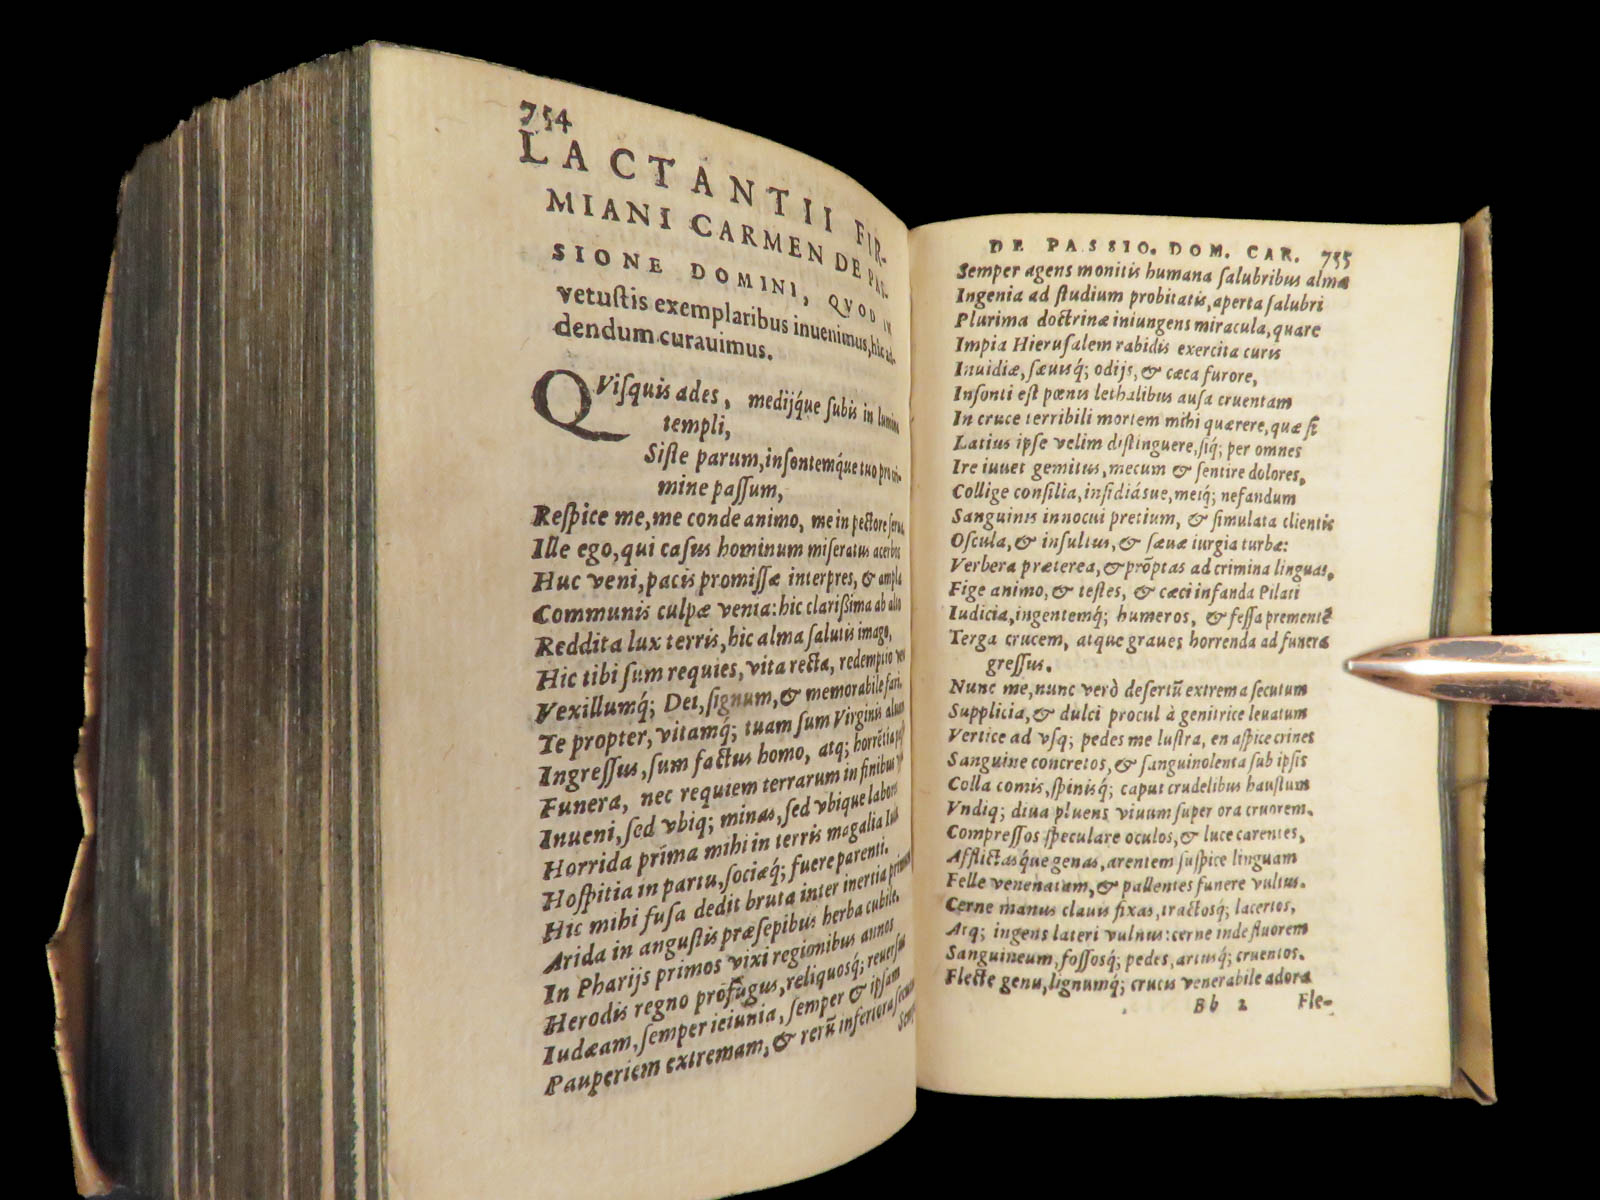 754
LACTANTII FIR-
MIANI CARMEN DE PAS-
SIONE DOMINI, QVOD IN
vetuſtis exemplaribus inuenimus, hîc ad-
dendum curauimus.
QViſquis ades, medijq́ue ſubis in lumina
templi,
Siſte parum, inſontemq́ue tuo pro cri-
mine paſſum,
Reſpice me, me conde animo, me in pectore ſerua.
Ille ego, qui caſus hominum miſeratus acerbos
Huc veni, pacis promiſſæ interpres, & ampla
Communis culpæ venia: hic clariſſima ab alto
Reddita lux terris, hic alma ſalutis imago,
Hic tibi ſum requies, vita recta, redemptio vera
Vexillumq́; Dei, ſignum, & memorabile fati.
Te propter, vitamq́; tuam ſum Virginis aluum
Ingreſſus, ſum factus homo, atq; horrẽtia paſſus
Funera, nec requiem terrarum in finibus
Inueni, ſed vbiq; minas, ſed vbique labores
Horrida prima mihi in terris magalia Iudæ
Hoſpitia in partu, ſociæq́; fuere parenti.
Hic mihi fuſa dedit bruta inter inertia primum
Arida in anguſtis præſepibus herba cubile.
In Pharijs primos vixi regionibus annos
Herodis regno profugus, reliquosq́; reuerſus
Iudæam, ſemper ieiunia, ſemper & ipſam
Pauperiem extremam, & rerũ inferiora ſecutus
Semper
DE PASSIO. DOM. CAR. 755
Semper agens monitis humana ſalubribus almæ
Ingenia ad ſtudium probitatis, aperta ſalubri
Plurima doctrinæ iniungens miracula, quare
Impia Hieruſalem rabidis exercita curis
Inuidiæ, ſæuisq́; odijs, & cæca furore,
Inſonti eſt pœnis lethalibus auſa cruentam
In cruce terribili mortem mihi quærere, quæ ſi
Latius ipſe velim diſtinguere, ſiq́; per omnes
Ire iuuet gemitus, mecum & ſentire dolores,
Collige conſilia, inſidiásue, meiq́; nefandum
Sanguinis innocui pretium, & ſimulata clientis
Oſcula, & inſultus, & ſæuæ iurgia turbæ:
Verbera præterea, & prõptas ad crimina linguas.
Fige animo, & teſtes, & cæci infanda Pilati
Iudicia, ingentemq́; humeros, & feſſa prementẽ
Terga crucem, atque graues horrenda ad funera
greſſus.
Nunc me, nunc verò deſertũ extrema ſecutum
Supplicia, & dulci procul à genitrice leuatum
Vertice ad vſq; pedes me luſtra, en aſpice crines
Sanguine concretos, & ſanguinolenta ſub ipſis
Colla comis, ſpinisq́; caput crudelibus hauſtum
Vndiq; diua pluens viuum ſuper ora cruorem.
Compreſſos ſpeculare oculos, & luce carentes,
Afflictasq́ue genas, arentem ſuſpice linguam
Felle venenatam, & pallentes funere vultus.
Cerne manus clauis fixas, tractosq́; lacertos,
Atq; ingens lateri vulnus: cerne inde fluorem
Sanguineum, foſſosq́; pedes, artusq́; cruentos.
Flecte genu, lignumq́; crucis venerabile adora
Bb 2 Fle-